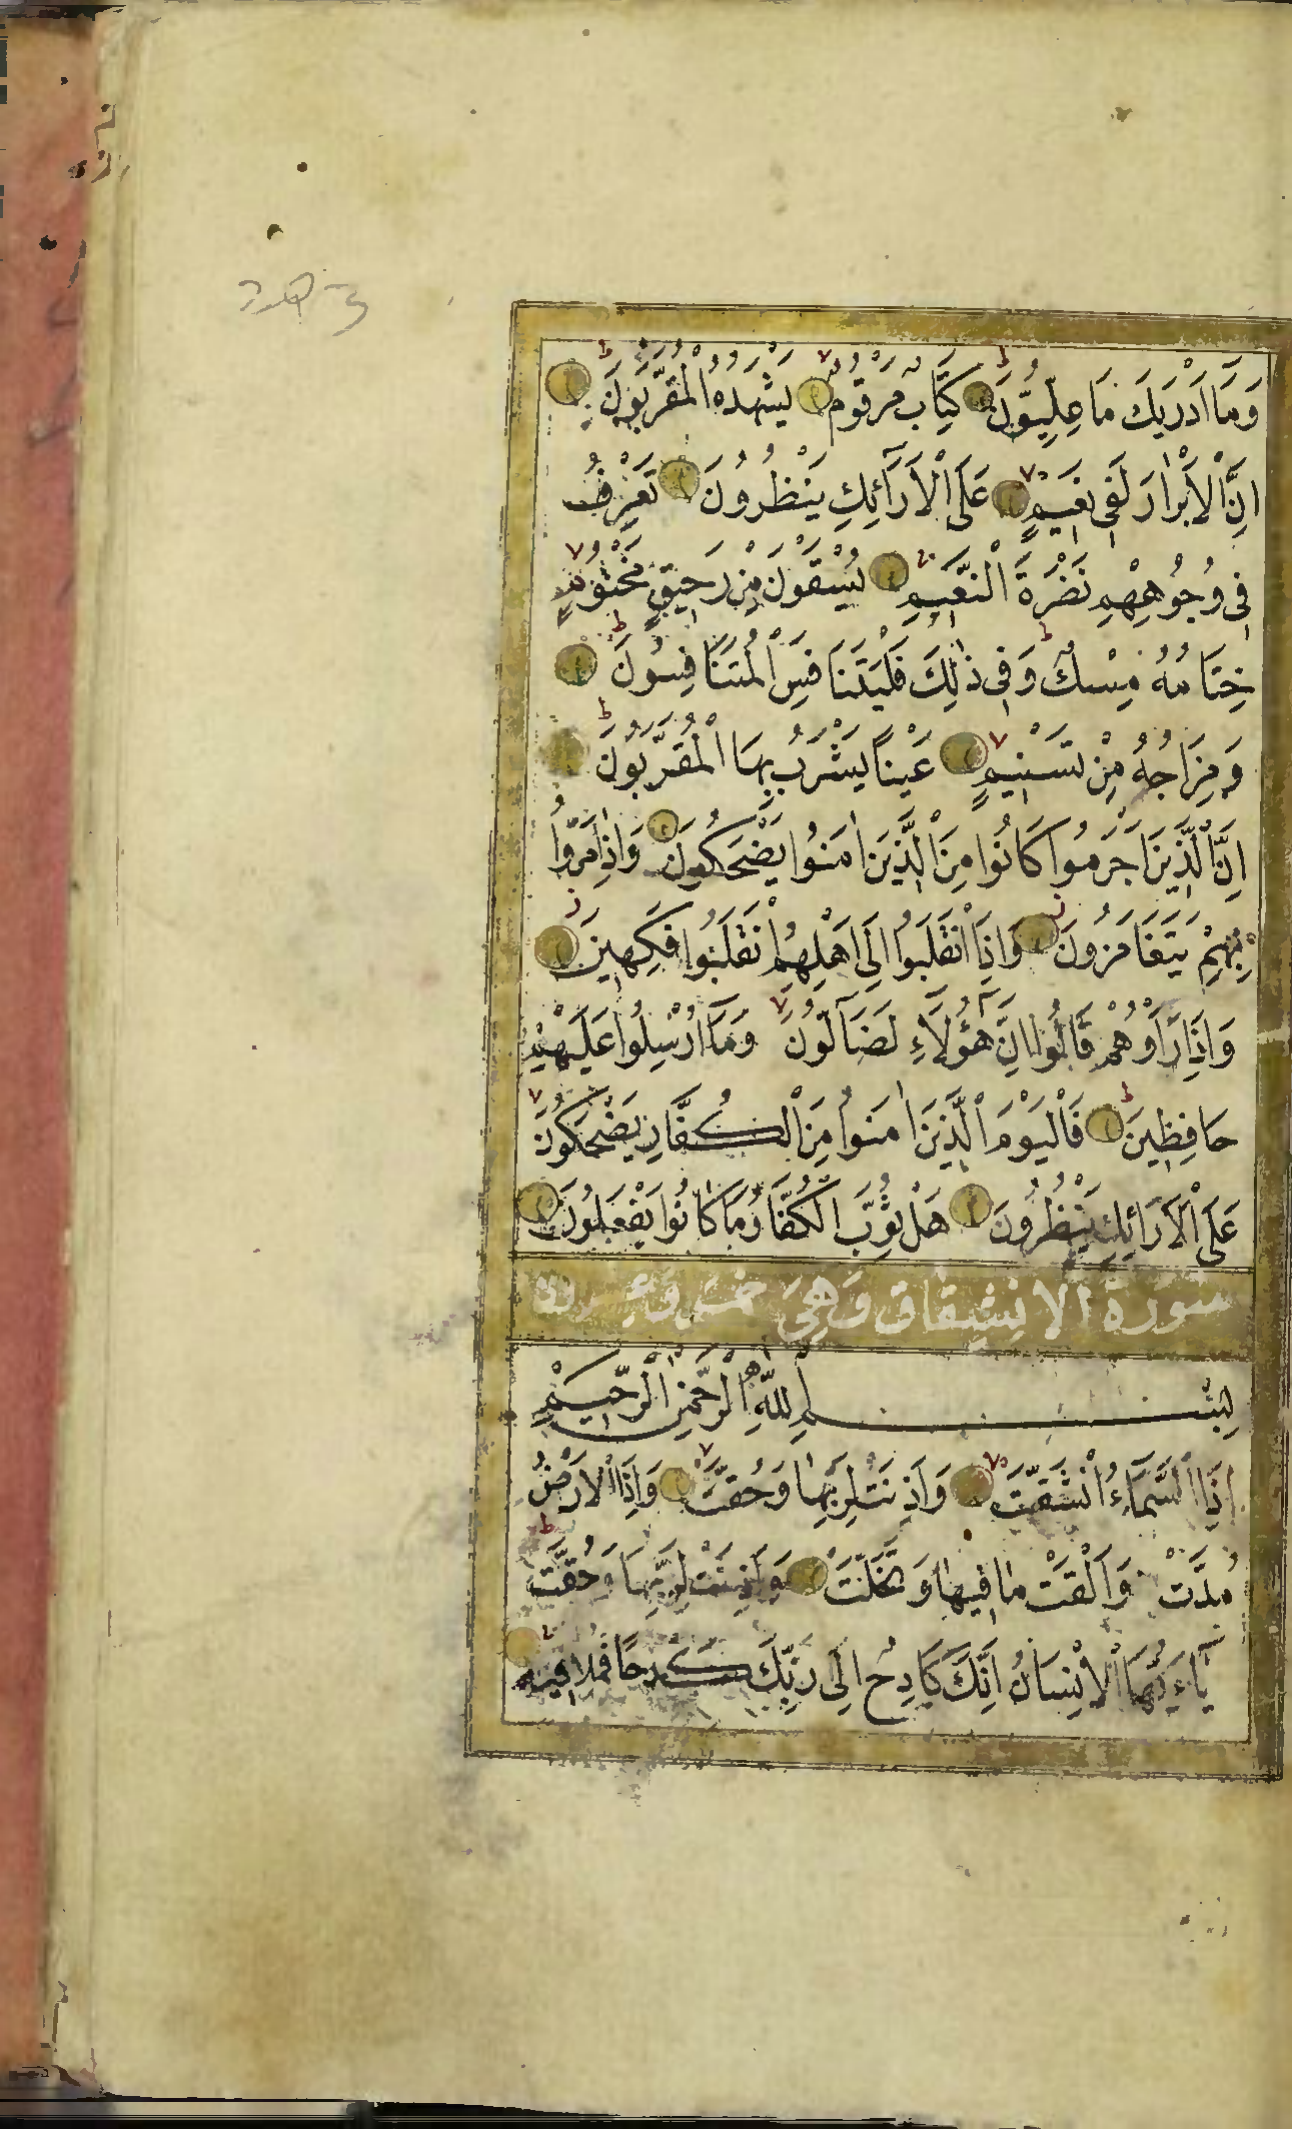 وَمَا اَدْرٰيكَ مَا عِلِّيُّونَ كِتَابٌ مَرْقُومٌ يَشْهَدُهُ الْمُقَرَّبُونَ
اِنَّ الْاَبْرَارَ لَفِى نَعِيمٍ عَلَى الْاَرَآئِكِ يَنْظُرُونَ تَعْرِفُ
فِى وُجُوهِهِمْ نَضْرَةَ النَّعِيمِ يُسْقَوْنَ مِنْ رَحِيقٍ مَخْتُومٍ
خِتَامُهُ مِسْكٌ وَفِى ذٰلِكَ فَلْيَتَنَافَسِ الْمُتَنَافِسُونَ
وَمِزَاجُهُ مِنْ تَسْنِيمٍ عَيْنًا يَشْرَبُ بِهَا الْمُقَرَّبُونَ
اِنَّ الَّذِينَ اَجْرَمُوا كَانُوا مِنَ الَّذِينَ اٰمَنُوا يَضْحَكُونَ وَاِذَا مَرُّوا
بِهِمْ يَتَغَامَزُونَ وَاِذَا انْقَلَبُوا اِلَى اَهْلِهِمُ انْقَلَبُوا فَكِهِينَ
وَاِذَا رَاَوْهُمْ قَالُوا اِنَّ هٰٓؤُلَآءِ لَضَآلُّونَ وَمَا اُرْسِلُوا عَلَيْهِمْ
حَافِظِينَ فَالْيَوْمَ الَّذِينَ اٰمَنُوا مِنَ الْكُفَّارِ يَضْحَكُونَ
عَلَى الْاَرَائِكِ يَنْظُرُونَ هَلْ ثُوِّبَ الْكُفَّارُ مَا كَانُوا يَفْعَلُونَ
سورة الانشقاق وهى خمس وعشرون
بِسْمِ اللّٰهِ الرَّحْمٰنِ الرَّحِيمِ
اِذَا السَّمَآءُ انْشَقَّتْ وَاَذِنَتْ لِرَبِّهَا وَحُقَّتْ وَاِذَا الْاَرْضُ
مُدَّتْ وَاَلْقَتْ مَا فِيهَا وَتَخَلَّتْ وَاَذِنَتْ لِرَبِّهَا وَحُقَّتْ
يَآءَيُّهَا الْاِنْسَانُ اِنَّكَ كَادِحٌ اِلَى رَبِّكَ كَدْحًا فَمُلَاقِيهِ